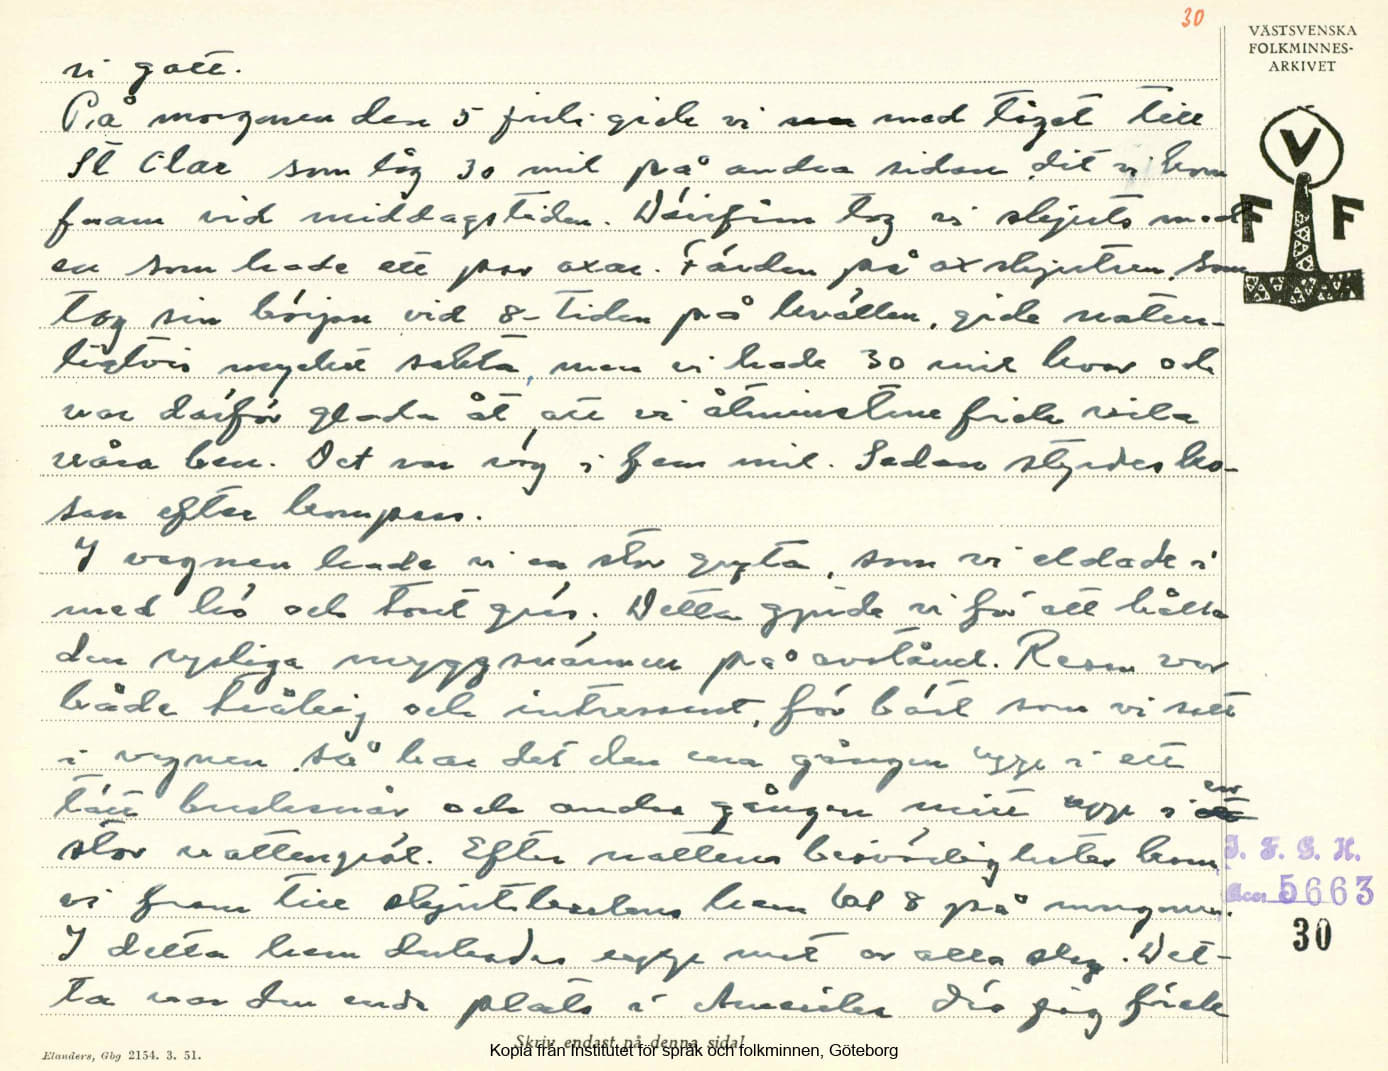 30
VÄSTSVENSKA
FOLKMINNES-
ARKIVET
V
F F
vi gott.
På morgonen den 5 juli gick vi med tåget till
St Clar som låg 30 mil på andra sidan, dit vi kom
fram vid middagstiden. Därifrån tog vi skjuts med
en som hade ett par oxar. Färden på oxskjutsen, som
tog sin början vid 8-tiden på kvällen, gick naturl-
ligtvis mycket sakta, men vi hade 30 mil kvar och
var därför glada åt, att vi åtminstone fick vila
våra ben. Det var väg i fem mil. Sedan styrdes ko-
san efter kompass.
I vagnen hade vi en stor gryta, som vi eldade i
med hö och torrt gräs. Detta gjorde vi för att hålla
den rysliga myggsvärmen på avstånd. Resan var
både tråkig och intressant, för bäst som vi satt
i vagnen så bar det den ena gången upp i ett
tätt busksnår och andra gången mitt upp i en
stor vattengröt. Efter nattens besvärligheter kom
vi fram till skjutskarlens hem kl 8 på morgonen.
I detta hem dukades upp mat av alla slag. Det-
ta var den enda plats i Amerika där jag fick
I. F. G. H.
Acc. 5663
30
Skriv endast på denna sida!
Elanders, Gbg 2154. 3. 51.
Kopia från Institutet för språk och folkminnen, Göteborg